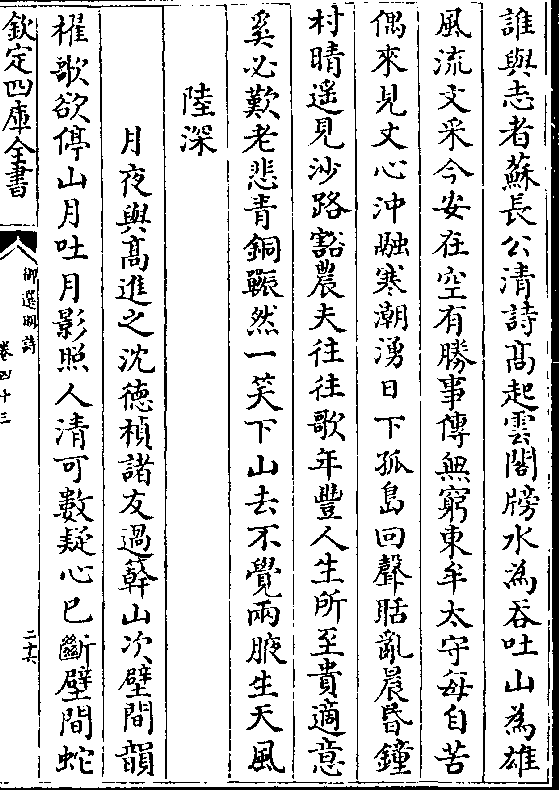 誰與志者蘇長公清詩髙起雲閣牓水為吞吐山為雄
風流文采今安在空有勝事傳無窮東牟太守每自苦
偶來見丈心沖融寒潮湧日下孤島回聲聒亂晨昏鐘
村晴遥見沙路豁農夫往往歌年豐人生所至貴適意
奚必歎老悲青銅囅然一笑下山去不覺兩腋生天風
陸深
月夜與髙進之沈德楨諸友過簳山次壁間韻
櫂歌欲停山月吐月影照人清可數疑心已斷壁間蛇
欽定四庫全書
御選明詩
卷四十三
二十六